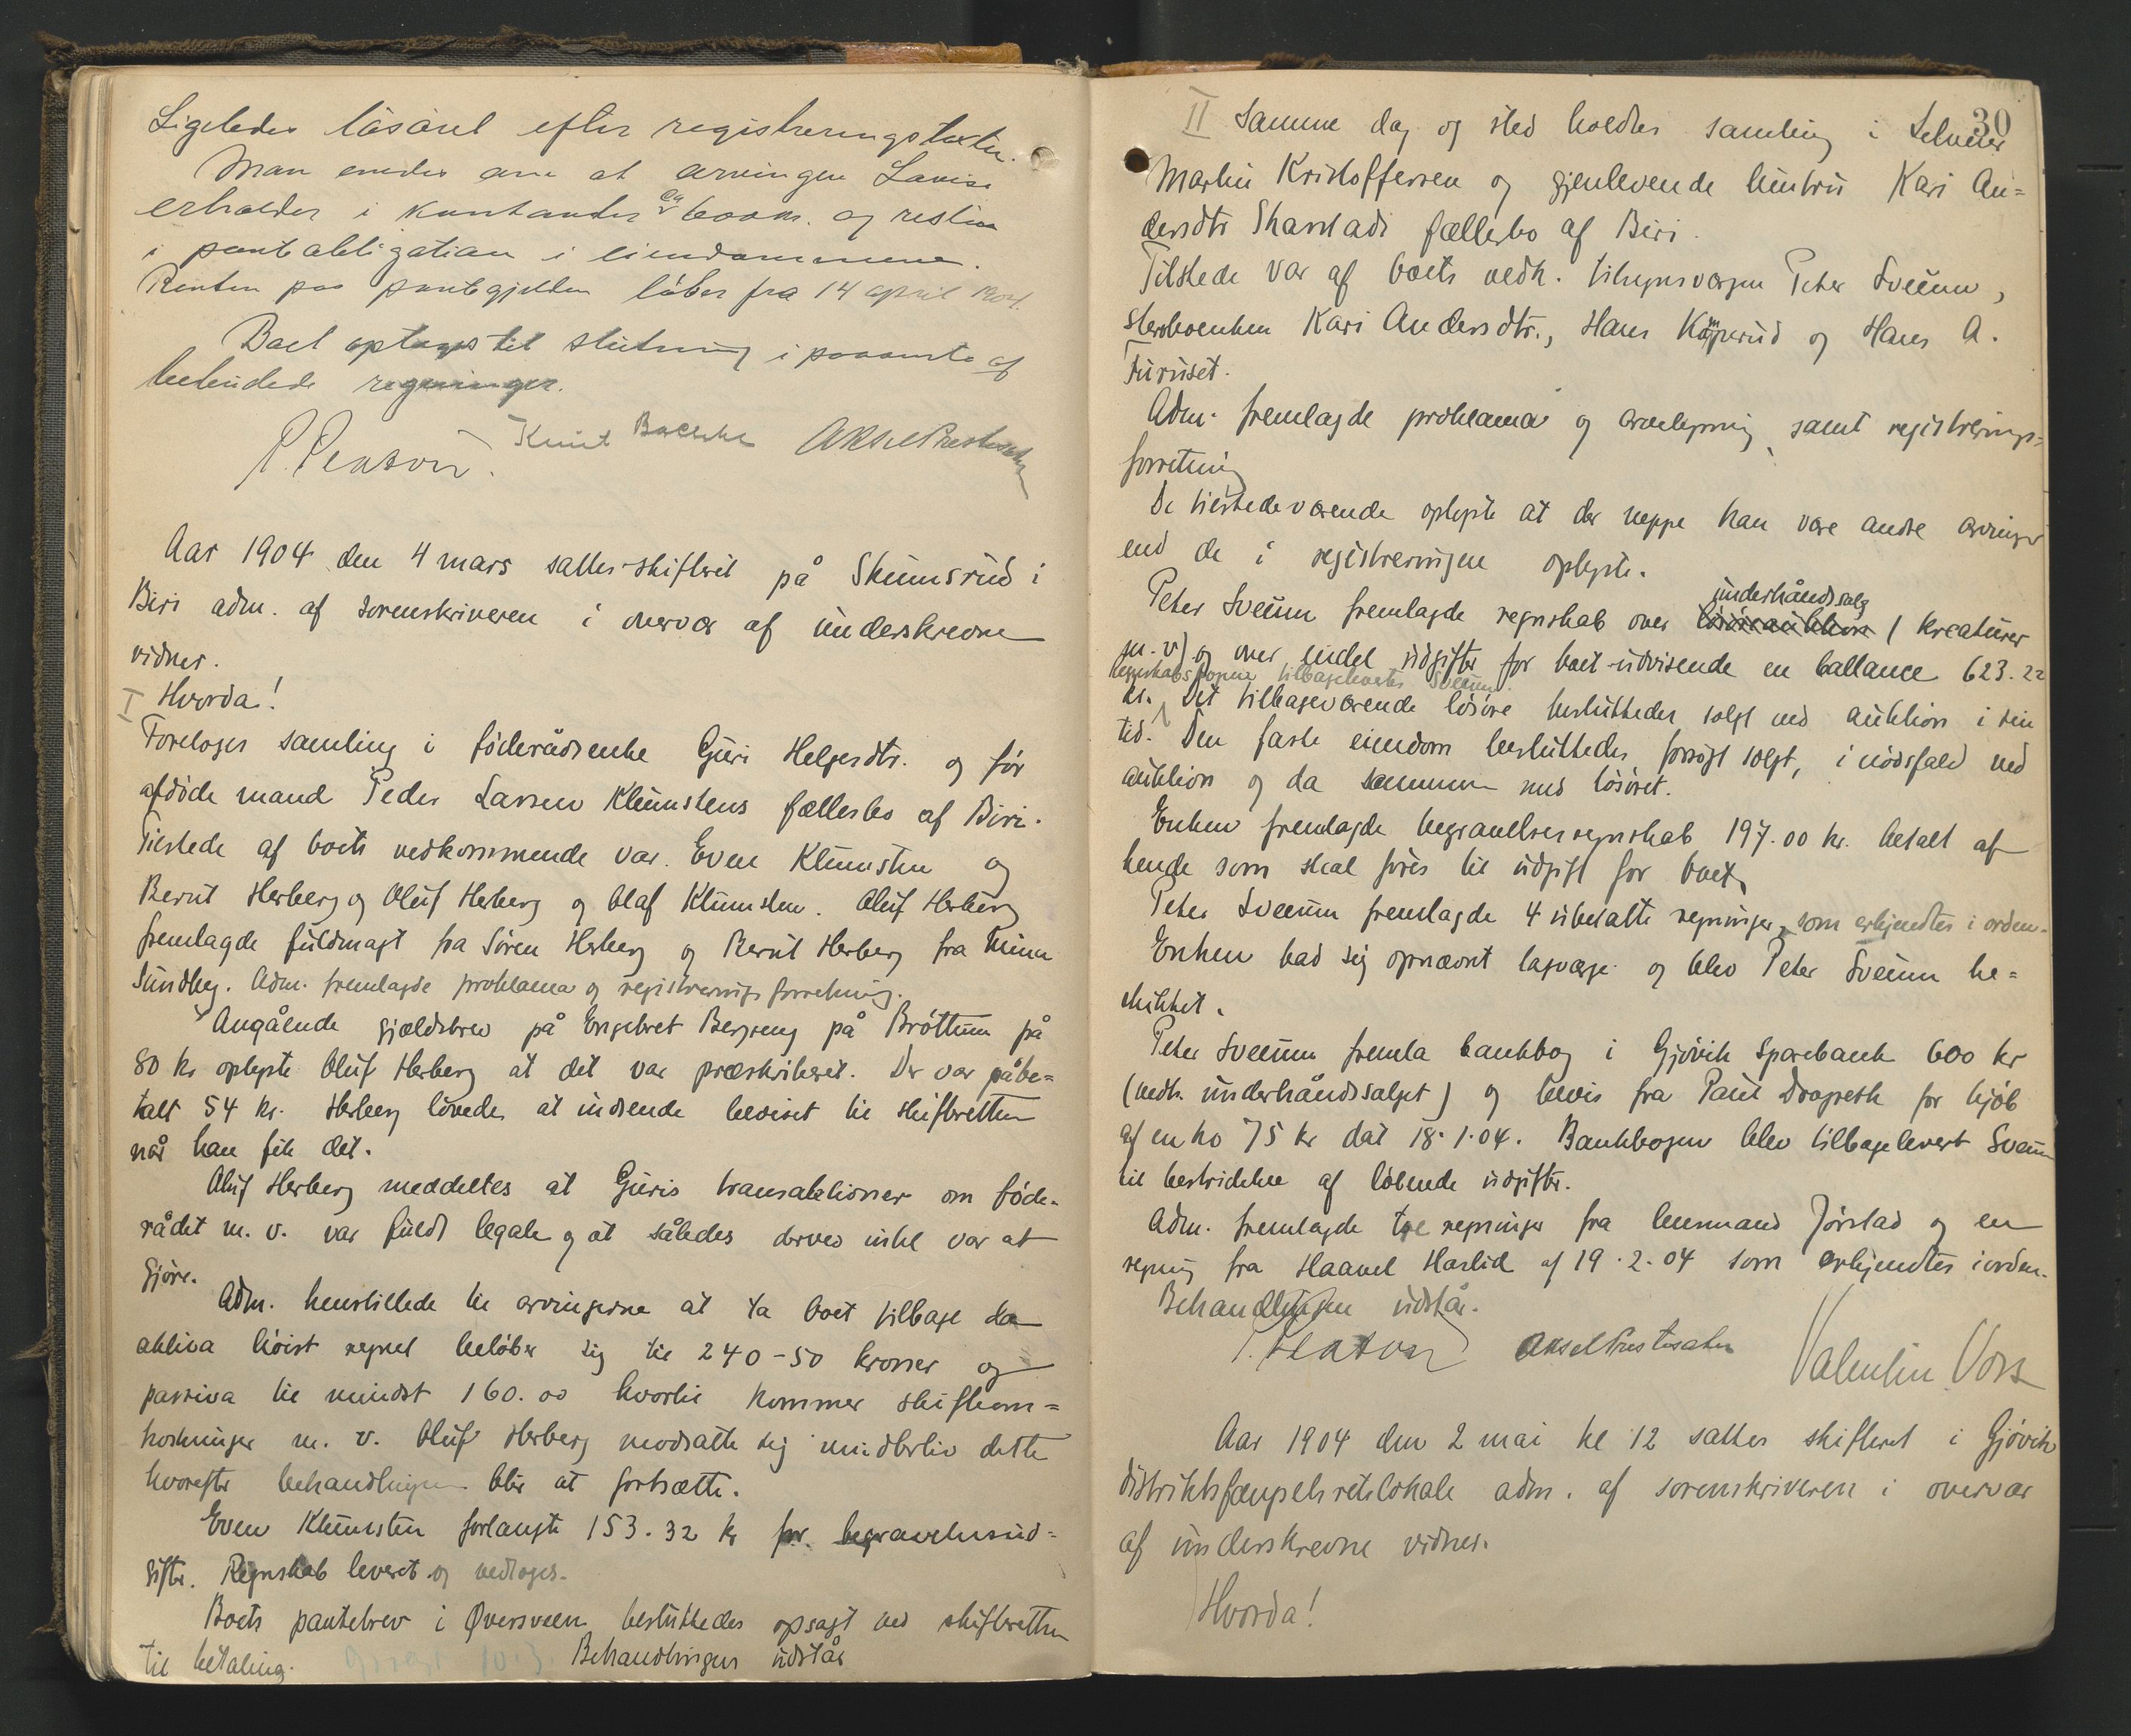 Ligeledes løsøret efter registreringstaxten.
Man enedes om at arvingen Lavise
erholder i kontanter ca 600 kr. og resten
i pantobligation i eiendommene.
Renten paa pantegjelden løber fra 14 april 1904.
Boet optages til slutning i paavente af
bebudede regninger.
P. Penson. Knut Baekke Aksel Prestesæter
Aar 1904 den 4 mars sattes skifteret på Skumsrud i
Biri adm. af sorenskriveren i overvær af underskrevne
vidner.
I Hvorda!
Foretoges samling i føderådsenke Guri Helgesdtr. og før
afdøde mand Peder Larsen Klumstens fællesbo af Biri.
Tilstede af boets vedkommende var Even Klumsten og
Bernt Herberg og Oluf Herberg og Olaf Klumsten. Oluf Herberg
fremlagde fuldmagt fra Søren Herberg og Bernt Herberg fra
Sundbg. Adm. fremlagde proklama og registreringsforretning.
Angående gjældsbrev på Engebret Bergseng på Brøttum på
80 kr oplyste Oluf Herberg at det var præskriberet. Der var påbe=
talt 54 kr. Herberg lovede at indsende beviset til skifteretten
når han fik det.
Oluf Herberg meddeltes at Guris transaktioner om føde-
rådet m. v. var fuldt legale og at således derved intet var at
gjøre.
Adm. henstillede til arvingerne at ta boet tilbage da
aktiva høist regnet beløber sig til 240-50 kroner og
passiva til mindst 160.00 hvortil kommer skifteom=
kostninger m. v. Oluf Herberg modsatte sig imidlertid dette
hvorefter behandlingen blir at fortsætte.
Even Klumsten forlangte 153.32 kr for begravelsesud=
gifter. Regnskab leveret og vedtoges.
Boets pantebrev i Øversveen besluttedes opsagt ved skifteretten
til betaling. Opsagt 10.3. Behandlingen udstår
30
II Samme dag og sted holdtes samling i selveier
Martin Kristoffersen og gjenlevende hustru Kari An=
dersdtr Skarstads fællesbo af Biri.
Tilstede var af boets vedk. tilsynsværgen Peter Sveum,
sterboenken Kari Andersdtr., Hans Kamperud og Hans A.
Furuset.
Adm. fremlagde proklama og arvelysning, samt registrerings=
forretning
De tilstedeværende oplyste at der neppe kan være andre arvinger
end de i registreringen oplyste.
underhåndssalg
Peter Sveum fremlagde regnskab over løsøreauktion (kreaturer
m. v) og over endel udgifter for boet udvisende en ballance 623.22
regnskabsbogen tilbageleveres Sveum.
kr. Det tilbageværende løsøre besluttedes solgt ved auktion i sin
tid. Den faste eiendom besluttedes forsøgt solgt, i nødsfald ved
auktion og da sammen med løsøret.
Enken fremlagde begravelsesregnskab 197.00 kr. betalt af
hende som skal føres til udgift for boet.
Peter Sveum fremlagde 4 ubetalte regninger, som erkjendtes i orden.
Enken bad sig opnævnt lagværge og blev Peter Sveum be=
skikket.
Peter Sveum fremla bankbog i Gjøvik Sparebank 600 kr
(vedk. underhåndssalget) og bevis fra Paul Dragseth for kjøb
af en ko 75 kr dat 18.1.04. Bankbogen blev tilbagelevert Sveum
til bestridelse af løbende udgifter.
Adm. fremlagde tre regninger fra lensmand Jørstad og en
regning fra Haavel Haslid af 19.2.04 som erkjendtes i orden.
Behandlingen udstår.
P. Penson Aksel Prestesæter Valentin Voss
Aar 1904 den 2 mai kl 12 sattes skifteret i Gjøvik
distriktsfængsels retslokale adm. af sorenskriveren i overvær
af underskrevne vidner.
Hvorda!